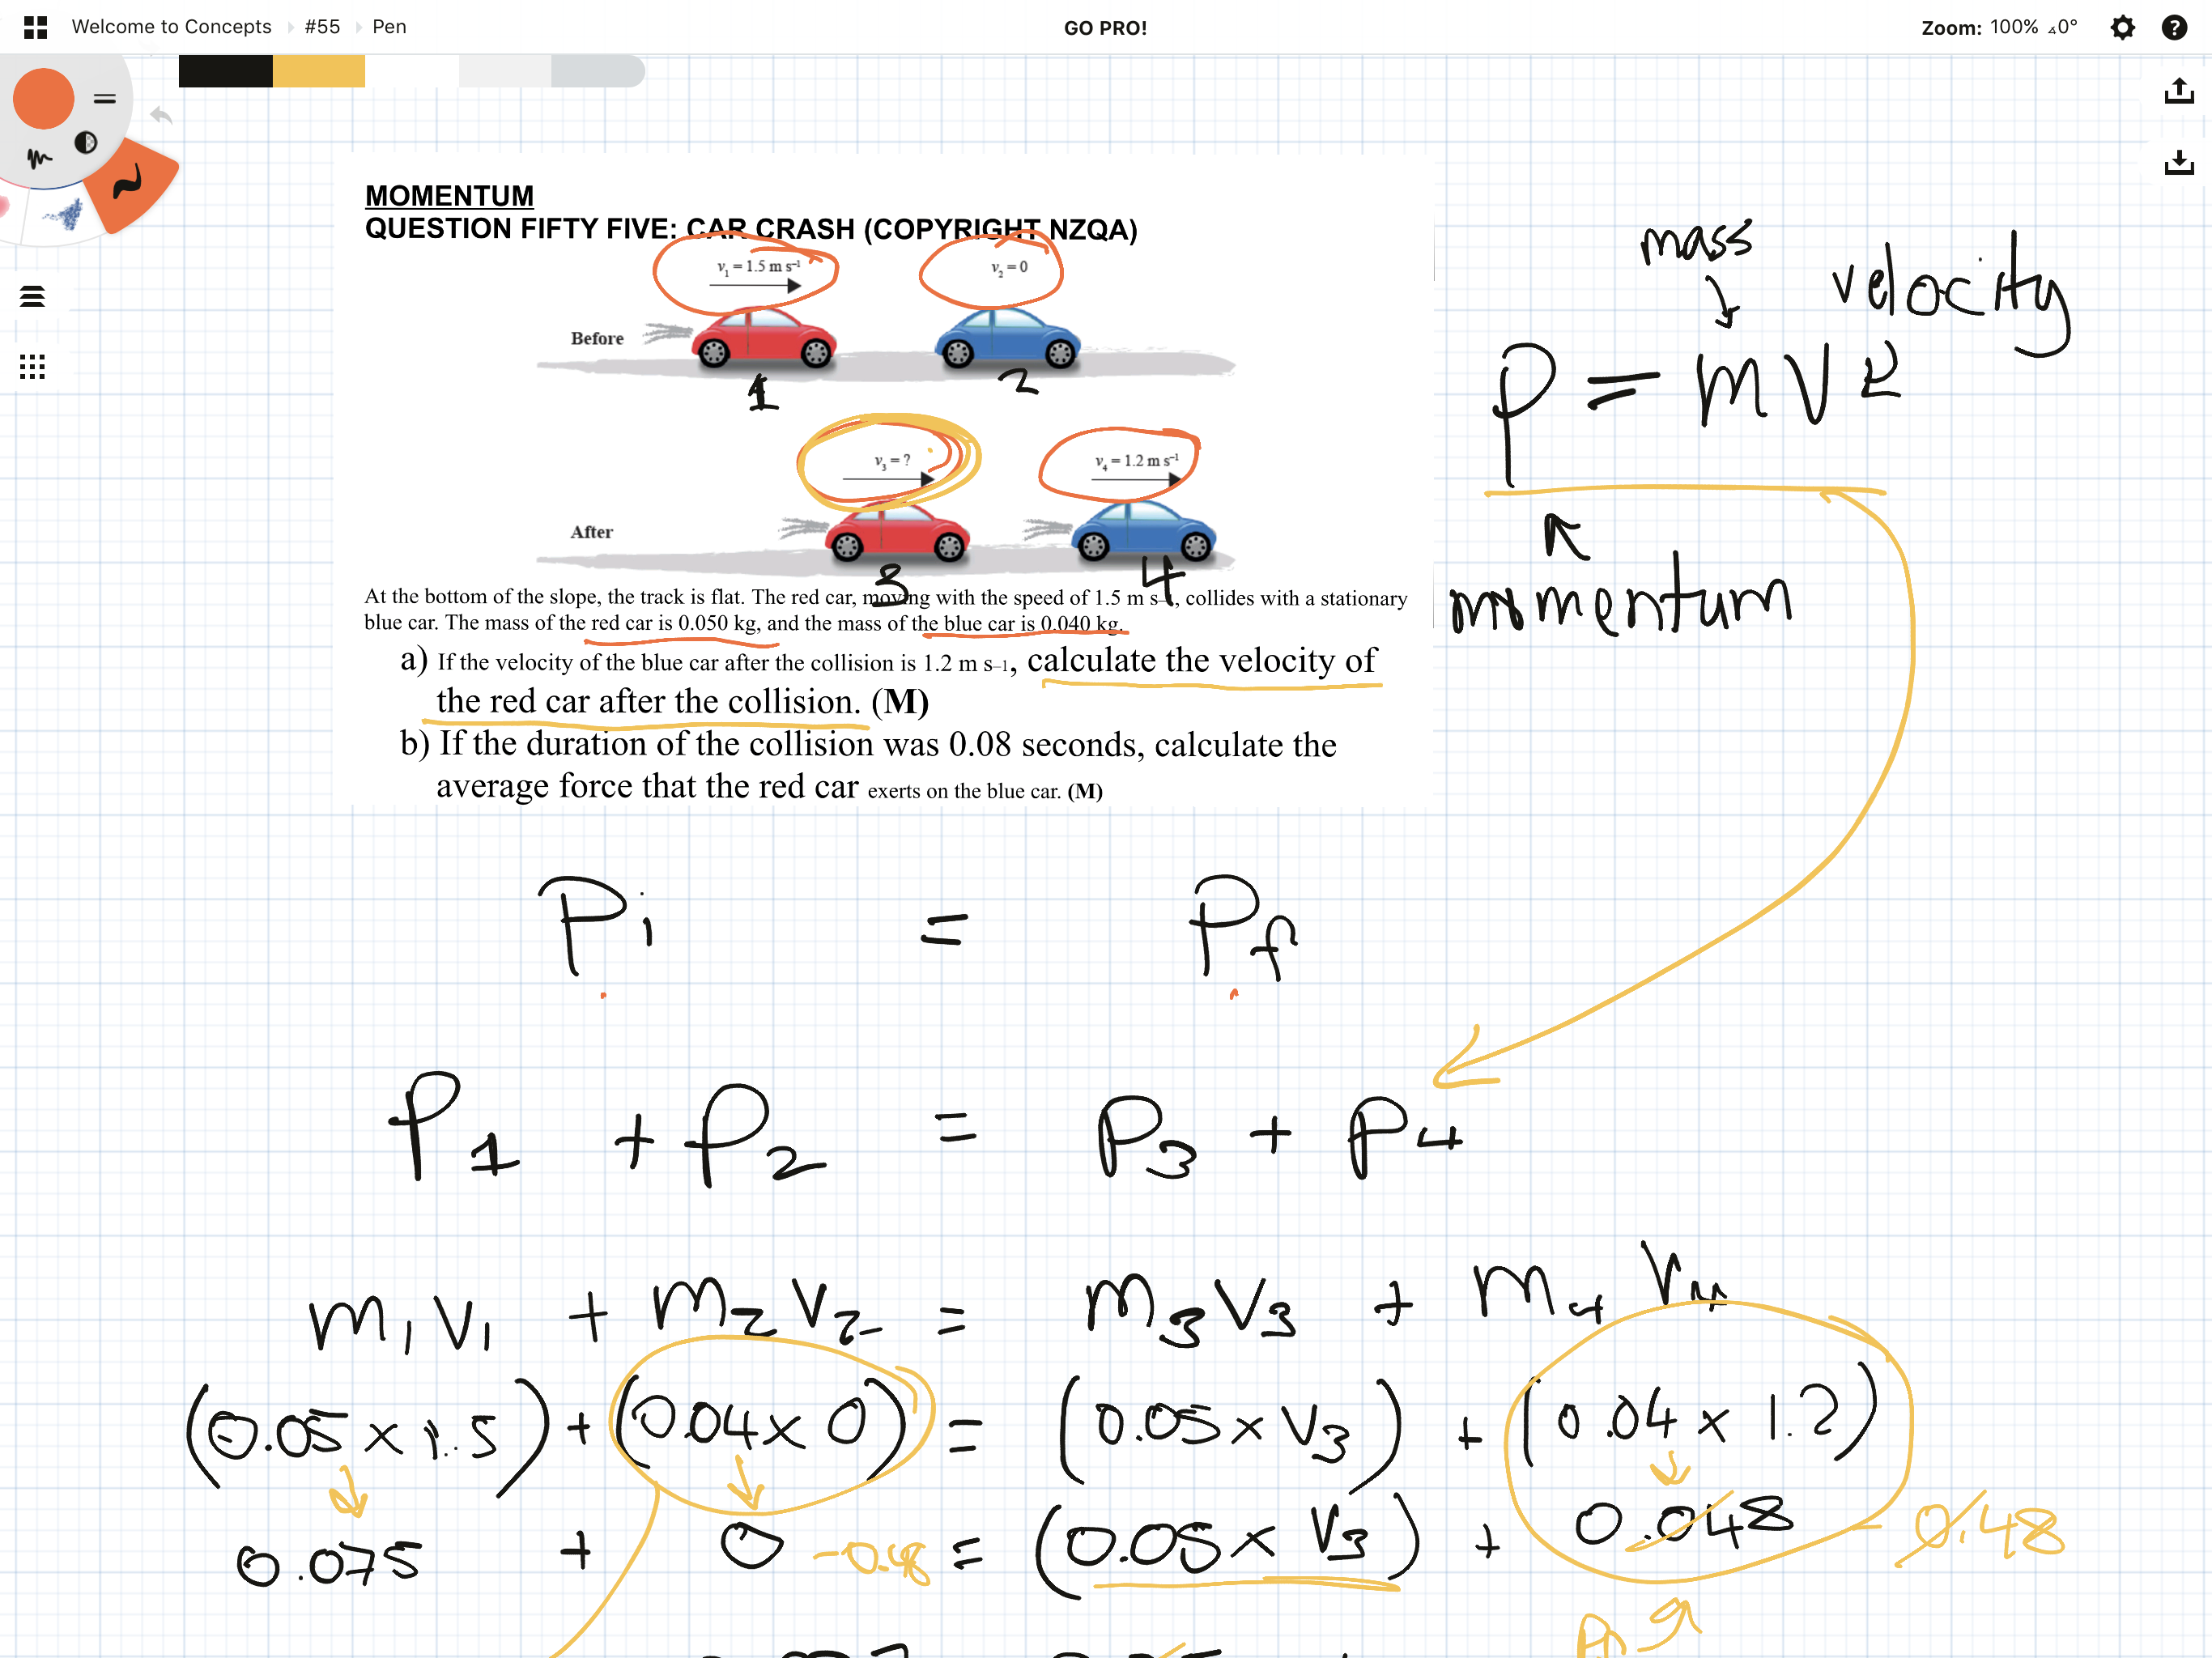 Welcome to Concepts #55 Pen GO PRO! Zoom: 100% ⊿0°
MOMENTUM
QUESTION FIFTY FIVE: CAR CRASH (COPYRIGHT NZQA)
v₁ = 1.5 m s⁻¹ v₂ = 0
Before
1 2
v₃ = ? v₄ = 1.2 m s⁻¹
After
3 4
At the bottom of the slope, the track is flat. The red car, moving with the speed of 1.5 m s⁻¹, collides with a stationary
blue car. The mass of the red car is 0.050 kg, and the mass of the blue car is 0.040 kg.
a) If the velocity of the blue car after the collision is 1.2 m s–1, calculate the velocity of
the red car after the collision. (M)
b) If the duration of the collision was 0.08 seconds, calculate the
average force that the red car exerts on the blue car. (M)
mass
velocity
P = mv
momentum
Pi = Pf
P1 + P2 = P3 + P4
m1v1 + m2v2 = m3v3 + m4v4
(0.05 x 1.5) + (0.04 x 0) = (0.05 x v3) + (0.04 x 1.2)
0.075 + 0 -0.48 = (0.05 x v3) + 0.048 - 0.48